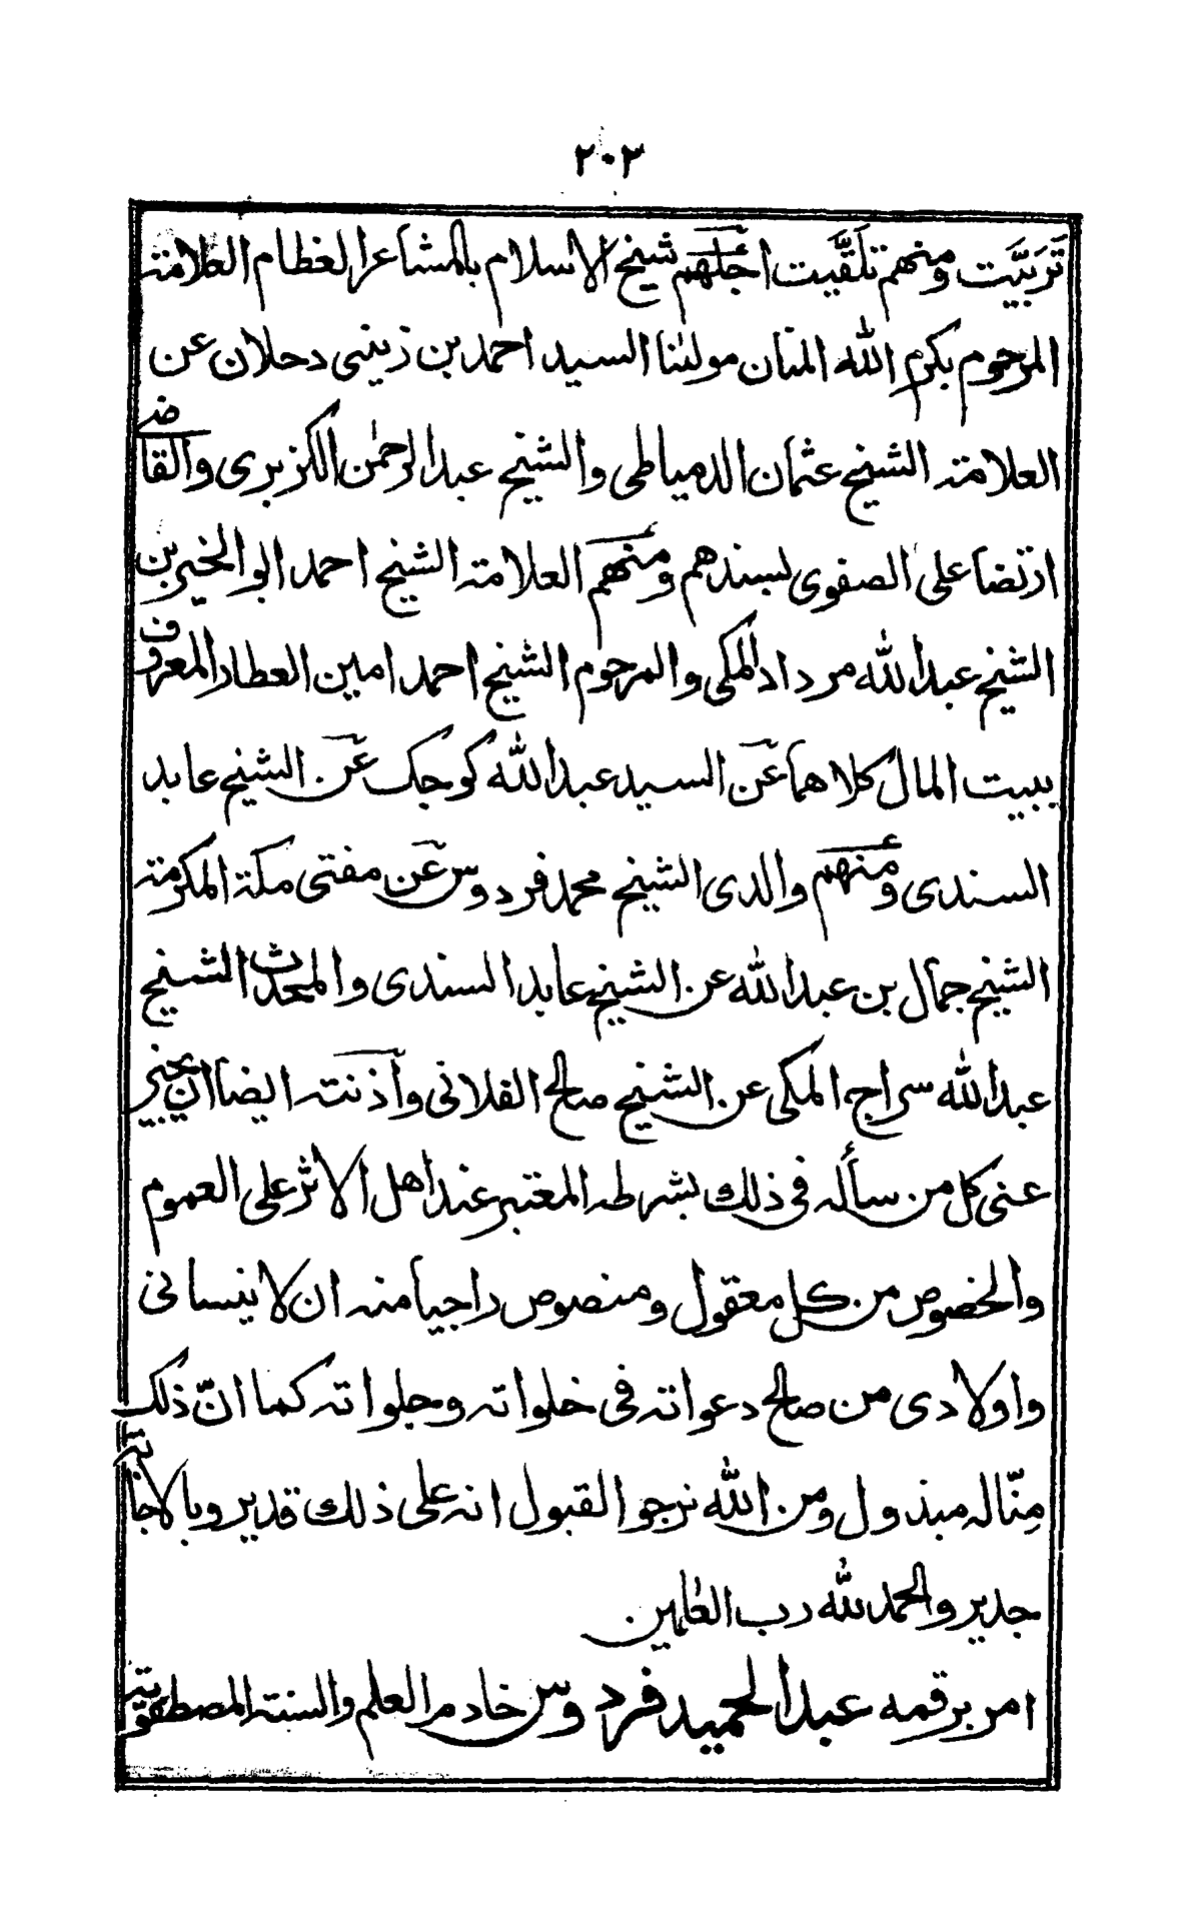 ٢٠٣
تَرَبَّيت ومنهم تلقَّيت اجلّهم شيخ الاسلام بالمشاعر العظام العلامته
المرحوم بكرم الله المنان مولٰنا السيد احمد بن زينى دحلان عن
العلامته الشيخ عثمان الدمياطى والشيخ عبد الرحمٰن الكزبرى والقاضے
ارتضا على الصفوى بسندهم ومنهم العلامته الشيخ احمد ابو الخير بن
الشيخ عبد الله مرداد المكى والمرحوم الشيخ احمد امين العطار المعروف
ببيت المال كلاهما عن السيد عبد الله كوجك عن الشيخ عابد
السندى ومنهم والدى الشيخ محمد فردوس عن مفتى مكة المكرمته
الشيخ جمال بن عبد الله عن الشيخ عابد السندى والمحدث الشيخ
عبد الله سراج المكى عن الشيخ صالح الفلانى وأذنته ايضا ان يجيز
عنى كل من سأله فى ذلك بشرطه المعتبر عند اهل الاثر على العموم
والخصوص من كل معقول ومنصوص راجيا منه ان لا ينسانى
واولادى من صالح دعواته فى خلواته وجلواته كما انّ ذلك
مِنّا له مبذول ومن الله نرجو القبول انه على ذلك قدير وبالاجابته
جدير والحمد لله رب العٰلمين
امر برقمه عبد الحميد فردوس خادم العلم والسنته المصطفويته